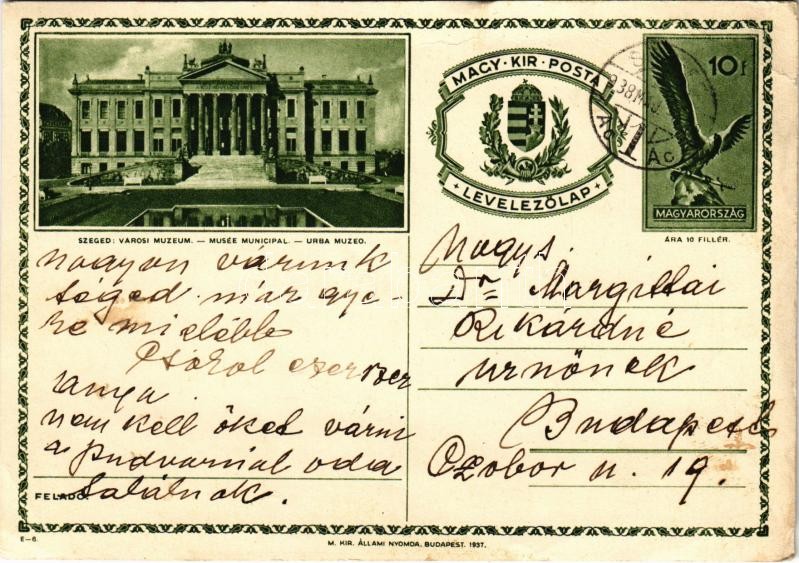 MAGY. KIR. POSTA
LEVELEZŐLAP
10 f
MAGYARORSZÁG
ÁRA 10 FILLÉR.
SZEGED: VÁROSI MUZEUM. — MUSÉE MUNICIPAL. — URBA MUZEO.
nagyon várunk
téged már gye-
re mielébb
csókol ezerszer
anya
nem kell őket várni
oda
találnak.
FELADÓ:
Nagys.
Dr. Margittai
Rikárdné
urnőnek
Budapest
Czobor u. 19.
E–6.
M. KIR. ÁLLAMI NYOMDA, BUDAPEST. 1937.